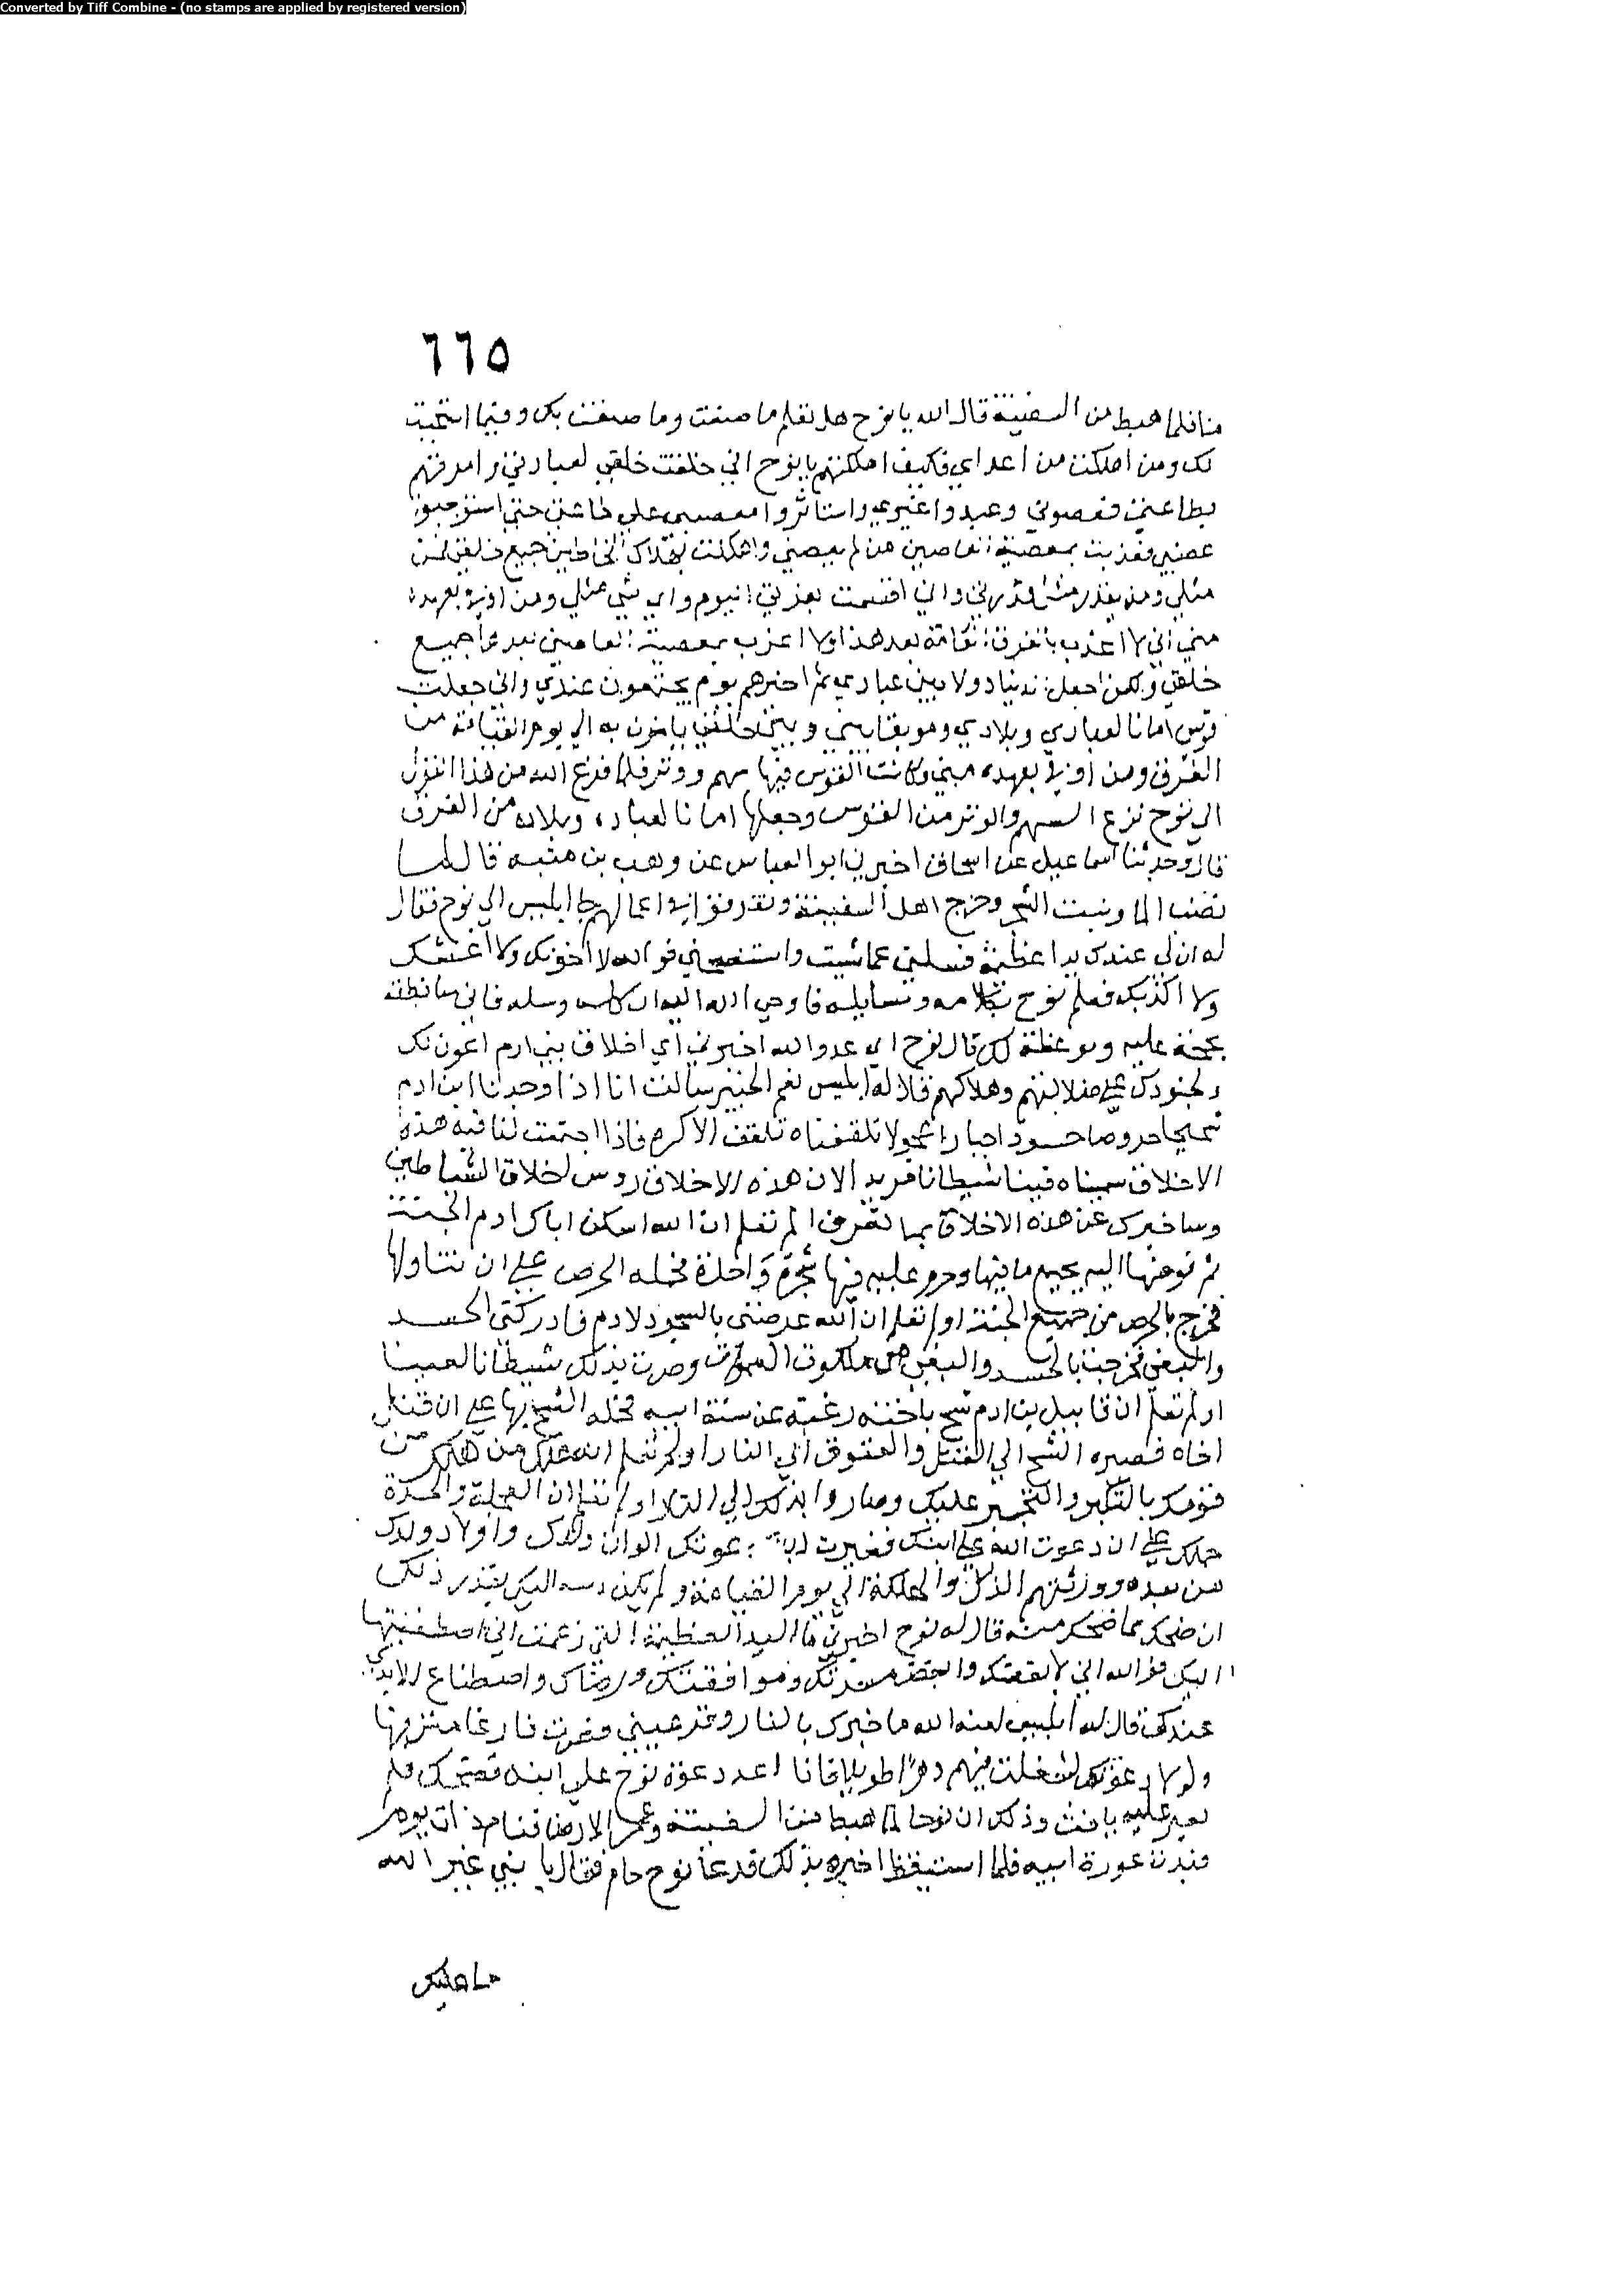 Converted by Tiff Combine - (no stamps are applied by registered version)
٦٦٥
منا فلما هبط من السفينة قال الله يا نوح هل تعلم ما صنعت وما صنعت بك وفيما استجبت
لك ومن اهلكت من اعداي فكيف اهلكتهم يا نوح اني خلقت خلقي لعبادتي وامرتهم
بطاعتي فعصوني وعبدوا غيري واستاثروا معصيتي علي طاعتي حتي استوجبوا
غضبي فعذبت بمعصية العاصين من لم يعصني واهلكت بهلاك الخاطين جميع خلقي فمن
مثلي ومن يقدر قدرتي واني اقسمت بعزتي اليوم واي شي مثلي ومن اوفي بعهده
مني اني لا اعذب بالغرق العامة بعد هذا ولا اعذب بمعصية العاصين بعد جميع
خلقي ولكن اجعل الدنيا دولا بين عبادي ثم اجزيهم يوم يجتمعون عندي واني جعلت
قوسي امانا لعبادي وبلادي وموثقا بيني وبين خلقي يامنون به الي يوم القيامة من
الغرق ومن اوفي بعهده مني وكانت القوس فيها سهم ووتر فلما فرغ الله من هذا القول
الي نوح نزع السهم والوتر من القوس وجعلها امانا لعباده وبلاده من الغرق
قال وحدثنا اسماعيل عن اسحاق اخبرني ابو العباس عن وهب بن منبه قال لما
نضب الما ونبت الشجر وخرج اهل السفينة وتفرقوا الي اعمالهم جا ابليس الي نوح فقال
له ان لك عندي يدا عظيمة فسلني عما شيت واستنصحني فوالله لا اخونك ولا اغشك
ولا اكذبك فعلم نوح بكلامه ومسايله فاوحي الله اليه ان كلمه وسله فاني سانطقه
بحجة عليه وموعظة لك قال نوح اي عدو الله اخبرني اي اخلاق بني ادم اعون لك
ولجنودك علي ضلالتهم وهلاكهم قال له ابليس نعم الخبير سالت انا اذا وجدنا ابن ادم
شحيحا حريصا حسودا جبارا عجولا تلقفناه تلقف الاكرة فاذا اجتمعت لنا فيه هذه
الاخلاق سميناه فينا شيطانا مريدا لان هذه الاخلاق روس اخلاق الشياطين
وساخبرك عن هذه الاخلاق بما تعرف الم تعلم ان الله اسكن اباك ادم الجنة
ثم فوضها اليه بجميع ما فيها وحرم عليه فيها شجرة واحدة فحمله الحرص علي ان تناولها
فخرج بالحرص من جميع الجنة اولم تعلم ان الله عرضني بالسجود لادم فادركني الحسد
والبغي فخرجت بالحسد والبغي من ملكوت السموات وصرت بذلك شيطانا لعينا
اولم تعلم ان قابيل بن ادم شح باخته رغبة عن سنة ابيه فحمله الشح بها علي ان قتل
اخاه فصيره الشح الي القتل والعقوق الي النار اولم تعلم انه هلك من هلك من
قومك بالتكبر والتجبر عليك وصاروا بذلك الي النار اولم تعلم ان العجلة والحدة
حملك علي ان دعوت الله علي ابنك فغيرت دعوتك الوان ولدك واولاد ولدك
من بعده وورثتهم الذل والهلكة الي يوم القيامة ولم يكن اليك بقدر ذلك
ان ضحك مما ضحك منه قال له نوح اخبرني ما اليد العظيمة التي زعمت اني اصطنعتها
اليك فوالله اني لابغضك وابغض مسرتك وموافقتك ورضاك واصطناع الايدي
عندك قال له ابليس لعنه الله ما خبرك بالنار فصرت فارغا منهم
ولولا دعوتك لشغلت فيهم دهرا طويلا فانا اعد دعوة نوح علي ابنه فضحك فلم
يغير عليه يافث وذلك ان نوحا لما هبط من السفينة وعمر الارض فنام ذات يوم
فبدت عورة ابيه فلما استيقظ اخبره بذلك فدعا نوح حام فقال يا بني غير الله
ما عليك